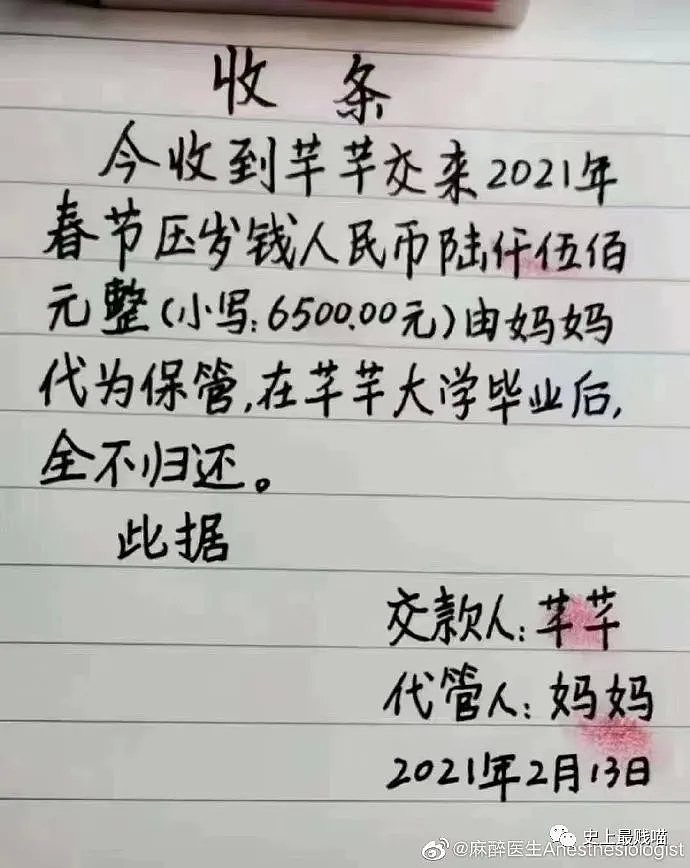 收条
今收到芊芊交来2021年
春节压岁钱人民币陆仟伍佰
元整(小写:6500.00元)由妈妈
代为保管,在芊芊大学毕业后,
全不归还。
此据
交款人:芊芊
代管人:妈妈
2021年2月13日
史上最贱喵
@麻醉医生Anesthesiologist